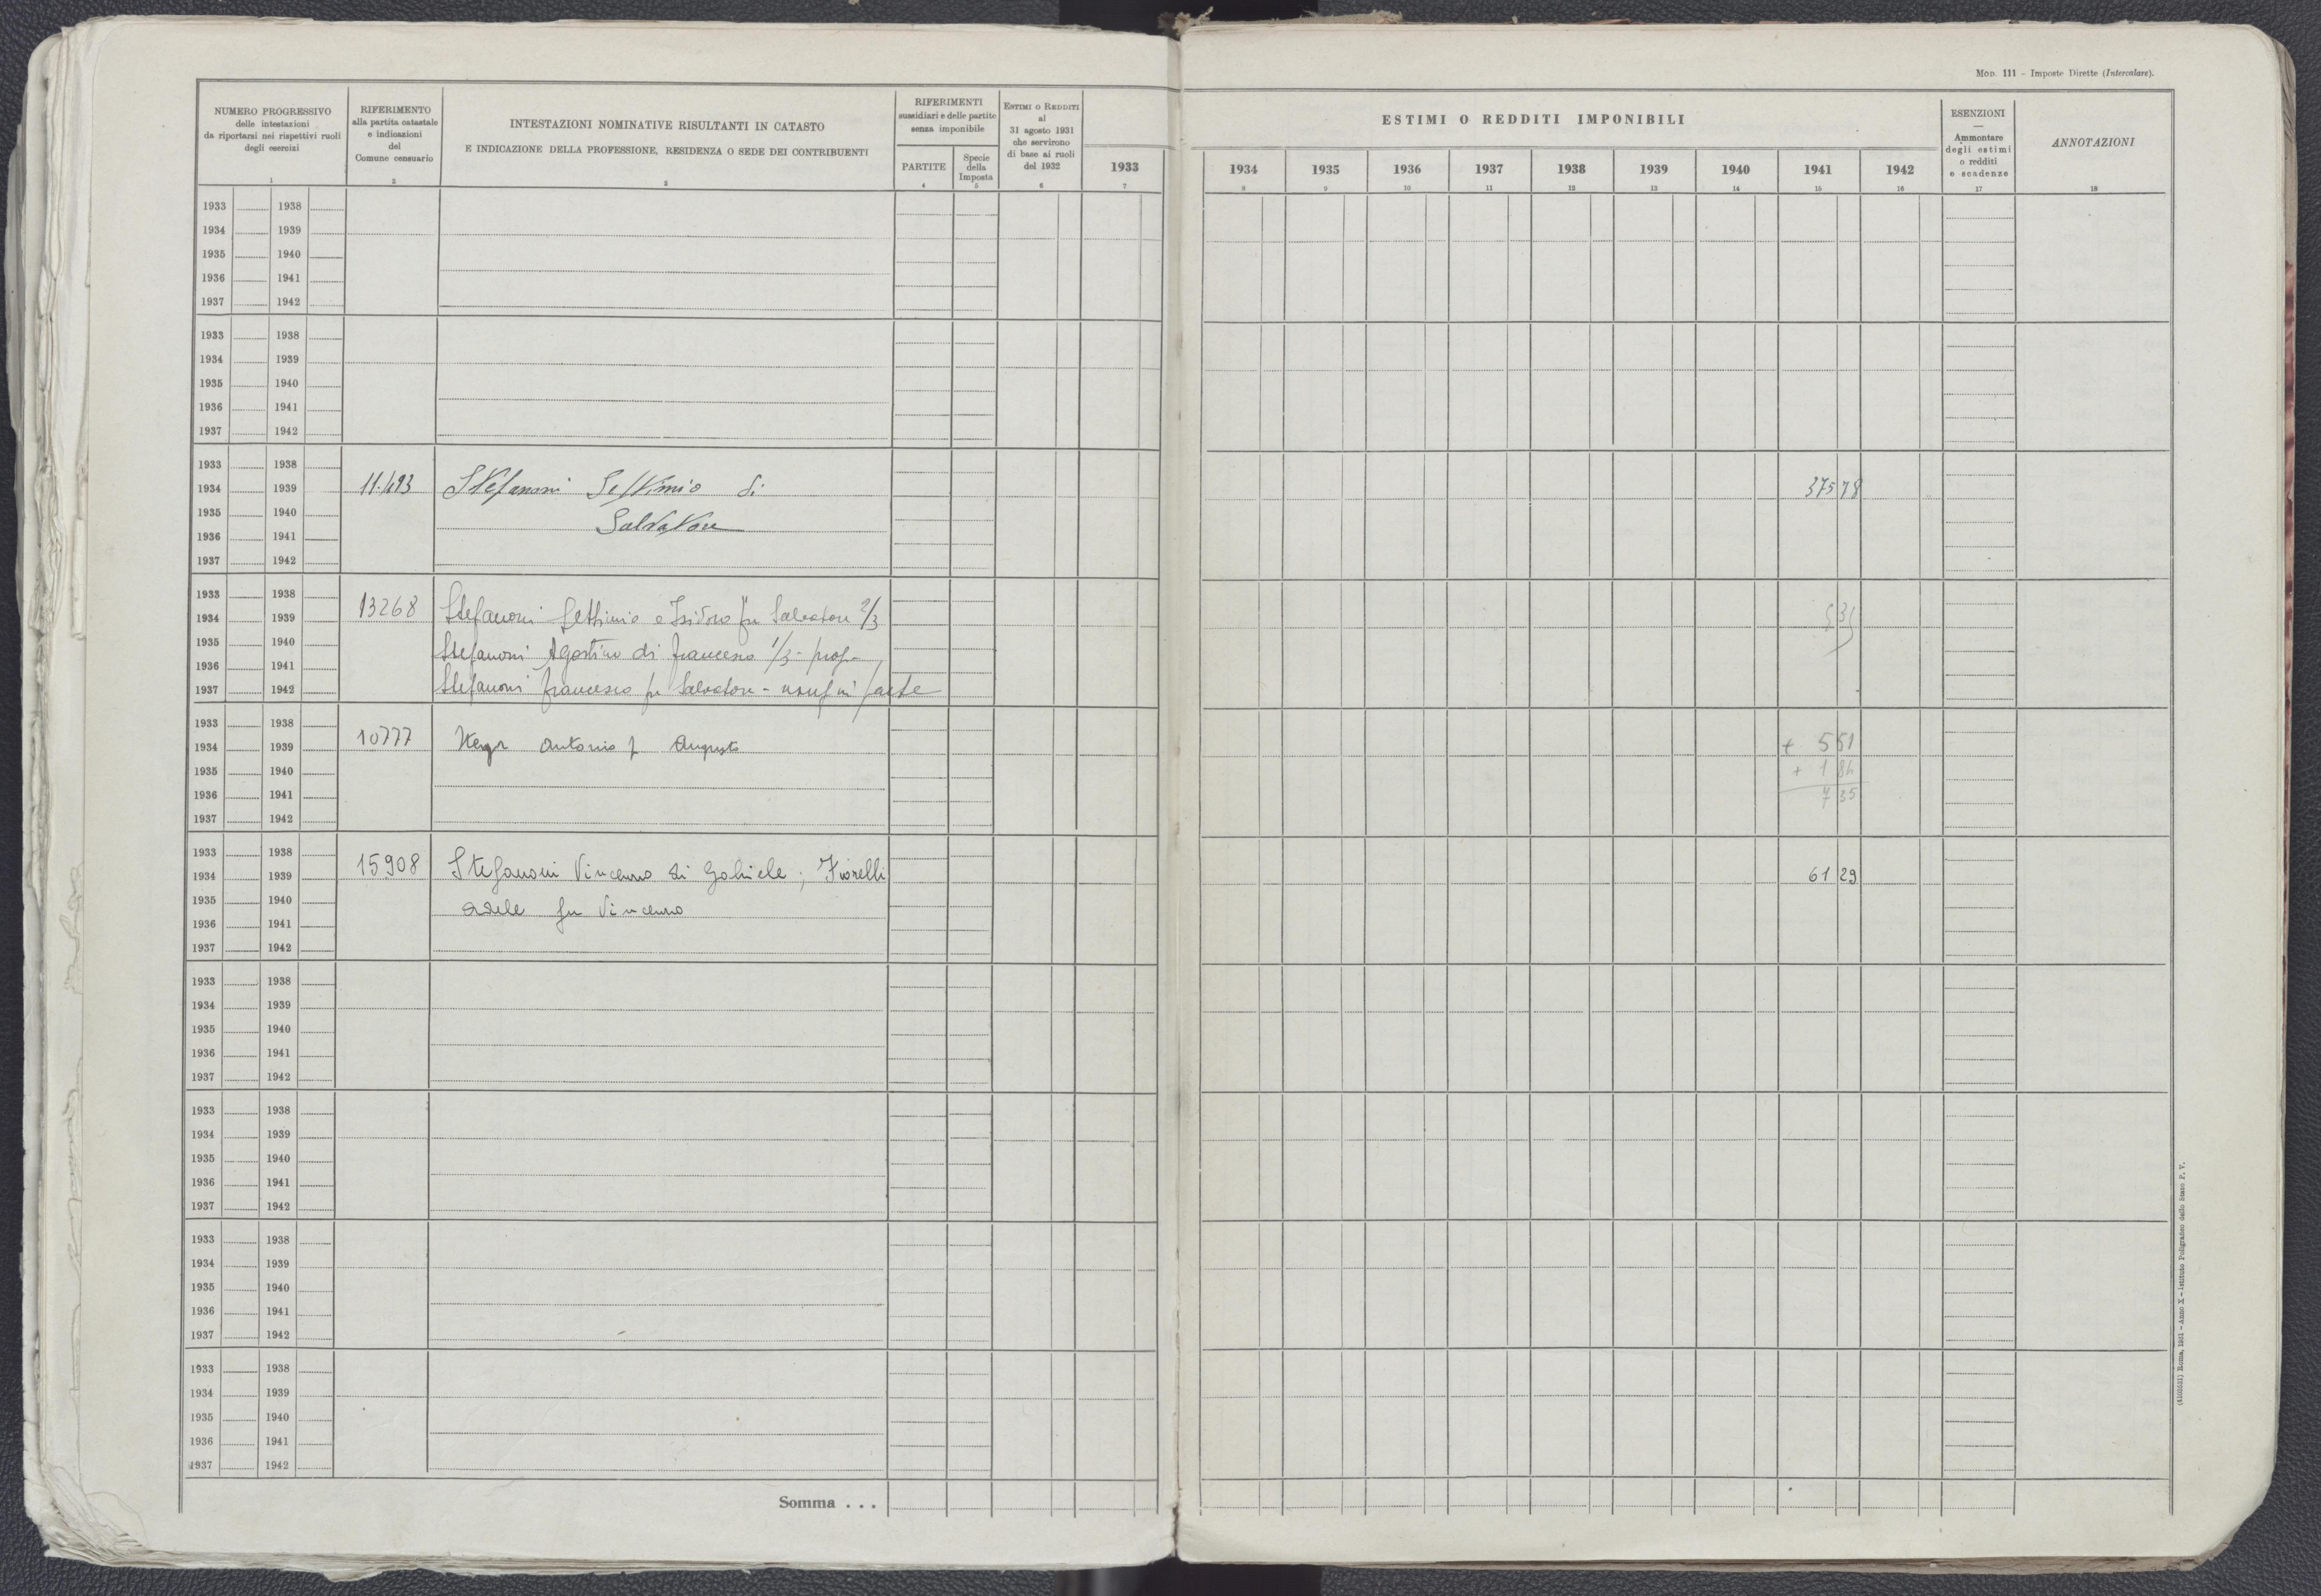 MOD. 111 - Imposte Dirette (Intercalare).
NUMERO PROGRESSIVO
delle intestazioni
da riportarsi nei rispettivi ruoli
degli esercizi
1
RIFERIMENTO
alla partita catastale
e indicazioni
del
Comune censuario
2
INTESTAZIONI NOMINATIVE RISULTANTI IN CATASTO
E INDICAZIONE DELLA PROFESSIONE, RESIDENZA O SEDE DEI CONTRIBUENTI
3
RIFERIMENTI
sussidiari e delle partite
senza imponibile
PARTITE
4
Specie
della
Imposta
5
ESTIMI O REDDITI
al
31 agosto 1931
che servirono
di base ai ruoli
del 1932
6
1933
7
ESTIMI O REDDITI IMPONIBILI
1934 1935 1936 1937 1938 1939 1940 1941 1942
8 9 10 11 12 13 14 15 16
ESENZIONI
—
Ammontare
degli estimi
o redditi
e scadenze
17
ANNOTAZIONI
18
1933 1938
1934 1939
1935 1940
1936 1941
1937 1942
1933 1938
1934 1939
1935 1940
1936 1941
1937 1942
1933 1938
1934 1939 Stefanoni Settimio di 375 78
1935 1940 Salvatore
1936 1941
1937 1942
1933 1938
1934 1939 13268 Stefanoni Settimio e Isidoro fu Salvatore 2/3
1935 1940
1936 1941 Stefanoni Agostino di Francesco 1/3 - prop -
1937 1942 Stefanoni Francesco fu Salvatore - usuf in parte
1933 1938
1934 1939 10777 Antonio f Augusto + 5 51
1935 1940 + 1 84
1936 1941 7 35
1937 1942
1933 1938
1934 1939 15908 Stefanoni Vincenzo di Gabriele; Fiorelli 61 29
1935 1940 Adele fu Vincenzo
1936 1941
1937 1942
1933 1938
1934 1939
1935 1940
1936 1941
1937 1942
1933 1938
1934 1939
1935 1940
1936 1941
1937 1942
1933 1938
1934 1939
1935 1940
1936 1941
1937 1942
1933 1938
1934 1939
1935 1940
1936 1941
1937 1942
Somma . . .
Roma, 1931 - Anno X - Istituto Poligrafico dello Stato P. V.